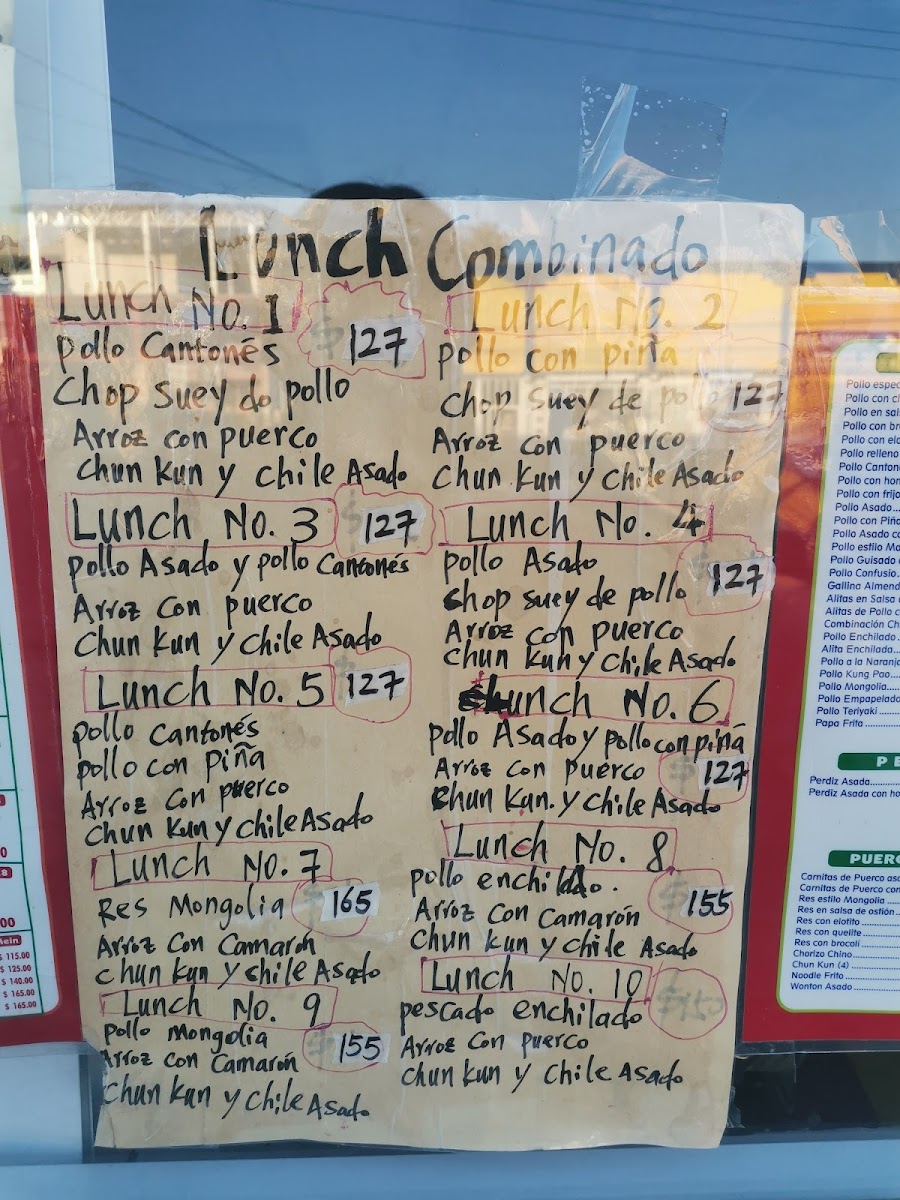 Lunch Combinado
Lunch No. 1
127
Pollo Cantonés
Chop Suey do pollo
Arroz con puerco
Chun Kun y Chile Asado
Lunch No. 2
pollo con piña
Chop Suey de pollo
127
Arroz con puerco
Chun Kun y Chile Asado
Lunch No. 3
127
pollo Asado y pollo Cantonés
Arroz con puerco
Chun Kun y chile Asado
Lunch No. 4
pollo Asado
127
Chop suey de pollo
Arroz con puerco
Chun Kun y Chile Asado
Lunch No. 5
127
pollo cantonés
pollo con piña
Arroz con puerco
Chun Kun y Chile Asado
Lunch No. 6
pollo Asado y pollo con piña
Arroz con puerco
127
Chun Kun. y chile Asado
Lunch No. 7
Res Mongolia
165
Arroz con Camarón
chun kun y chile Asado
Lunch No. 8
pollo enchilado.
155
Arroz con Camarón
Chun Kun y chile Asado
Lunch No. 9
pollo Mongolia
155
Arroz con Camarón
Chun Kun y Chile Asado
Lunch No. 10
pescado enchilado
Arroz con puerco
Chun Kun y Chile Asado
$ 115.00
$ 125.00
$ 140.00
$ 165.00
$ 165.00
Pollo con
Pollo en
Pollo con
Pollo con
Pollo relleno
Pollo
Pollo con
Pollo con
Pollo Asado
Pollo con Piña
Pollo Asado
Pollo estilo
Pollo Guisado
Pollo Confusio
Gallina
Alitas en Salsa
Alitas de Pollo
Combinación
Pollo Enchilado
Alita Enchilada
Pollo a la Naranja
Pollo Kung Pao
Pollo Mongolia
Pollo Empapelado
Pollo Teriyaki
Papa Frita
Perdiz Asada
Perdiz Asada con
Carnitas de Puerco
Carnitas de Puerco
Res estilo Mongolia
Res en salsa de ostión
Res con elotito
Res con quelite
Res con brocoli
Chorizo Chino
Chun Kun (4)
Noodle Frito
Wonton Asado